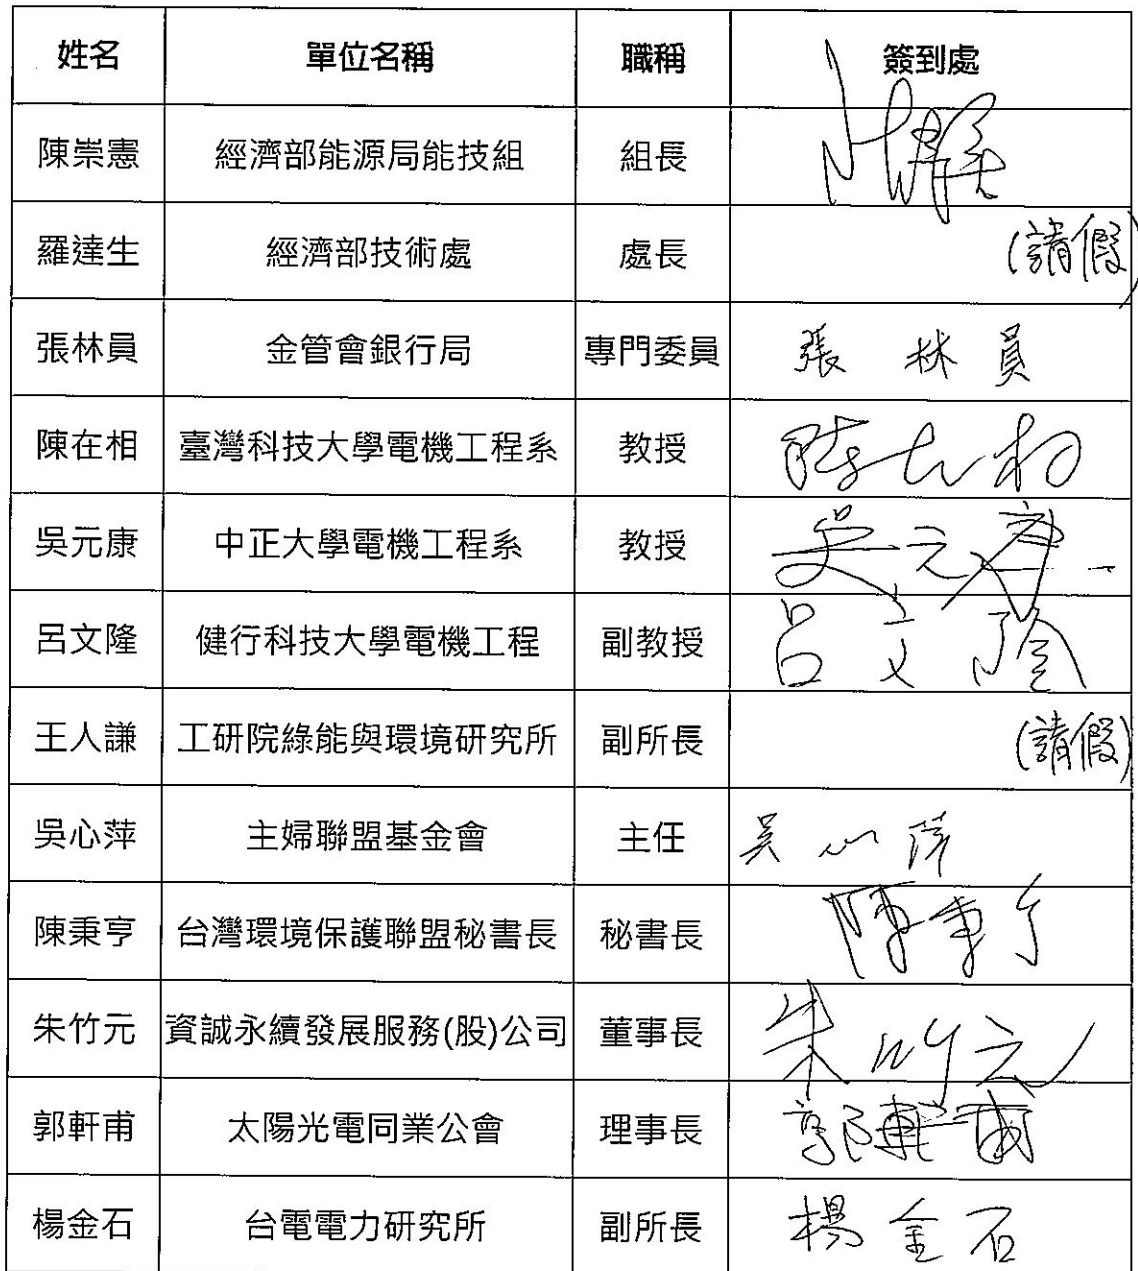 姓名 單位名稱 職稱 簽到處
陳崇憲 經濟部能源局能技組 組長
羅達生 經濟部技術處 處長 (請假)
張林員 金管會銀行局 專門委員 張林員
陳在相 臺灣科技大學電機工程系 教授 陳在相
吳元康 中正大學電機工程系 教授 吳元康
呂文隆 健行科技大學電機工程 副教授 呂文隆
王人謙 工研院綠能與環境研究所 副所長 (請假)
吳心萍 主婦聯盟基金會 主任 吳心萍
陳秉亨 台灣環境保護聯盟秘書長 秘書長 陳秉亨
朱竹元 資誠永續發展服務(股)公司 董事長 朱竹元
郭軒甫 太陽光電同業公會 理事長 郭軒甫
楊金石 台電電力研究所 副所長 楊金石